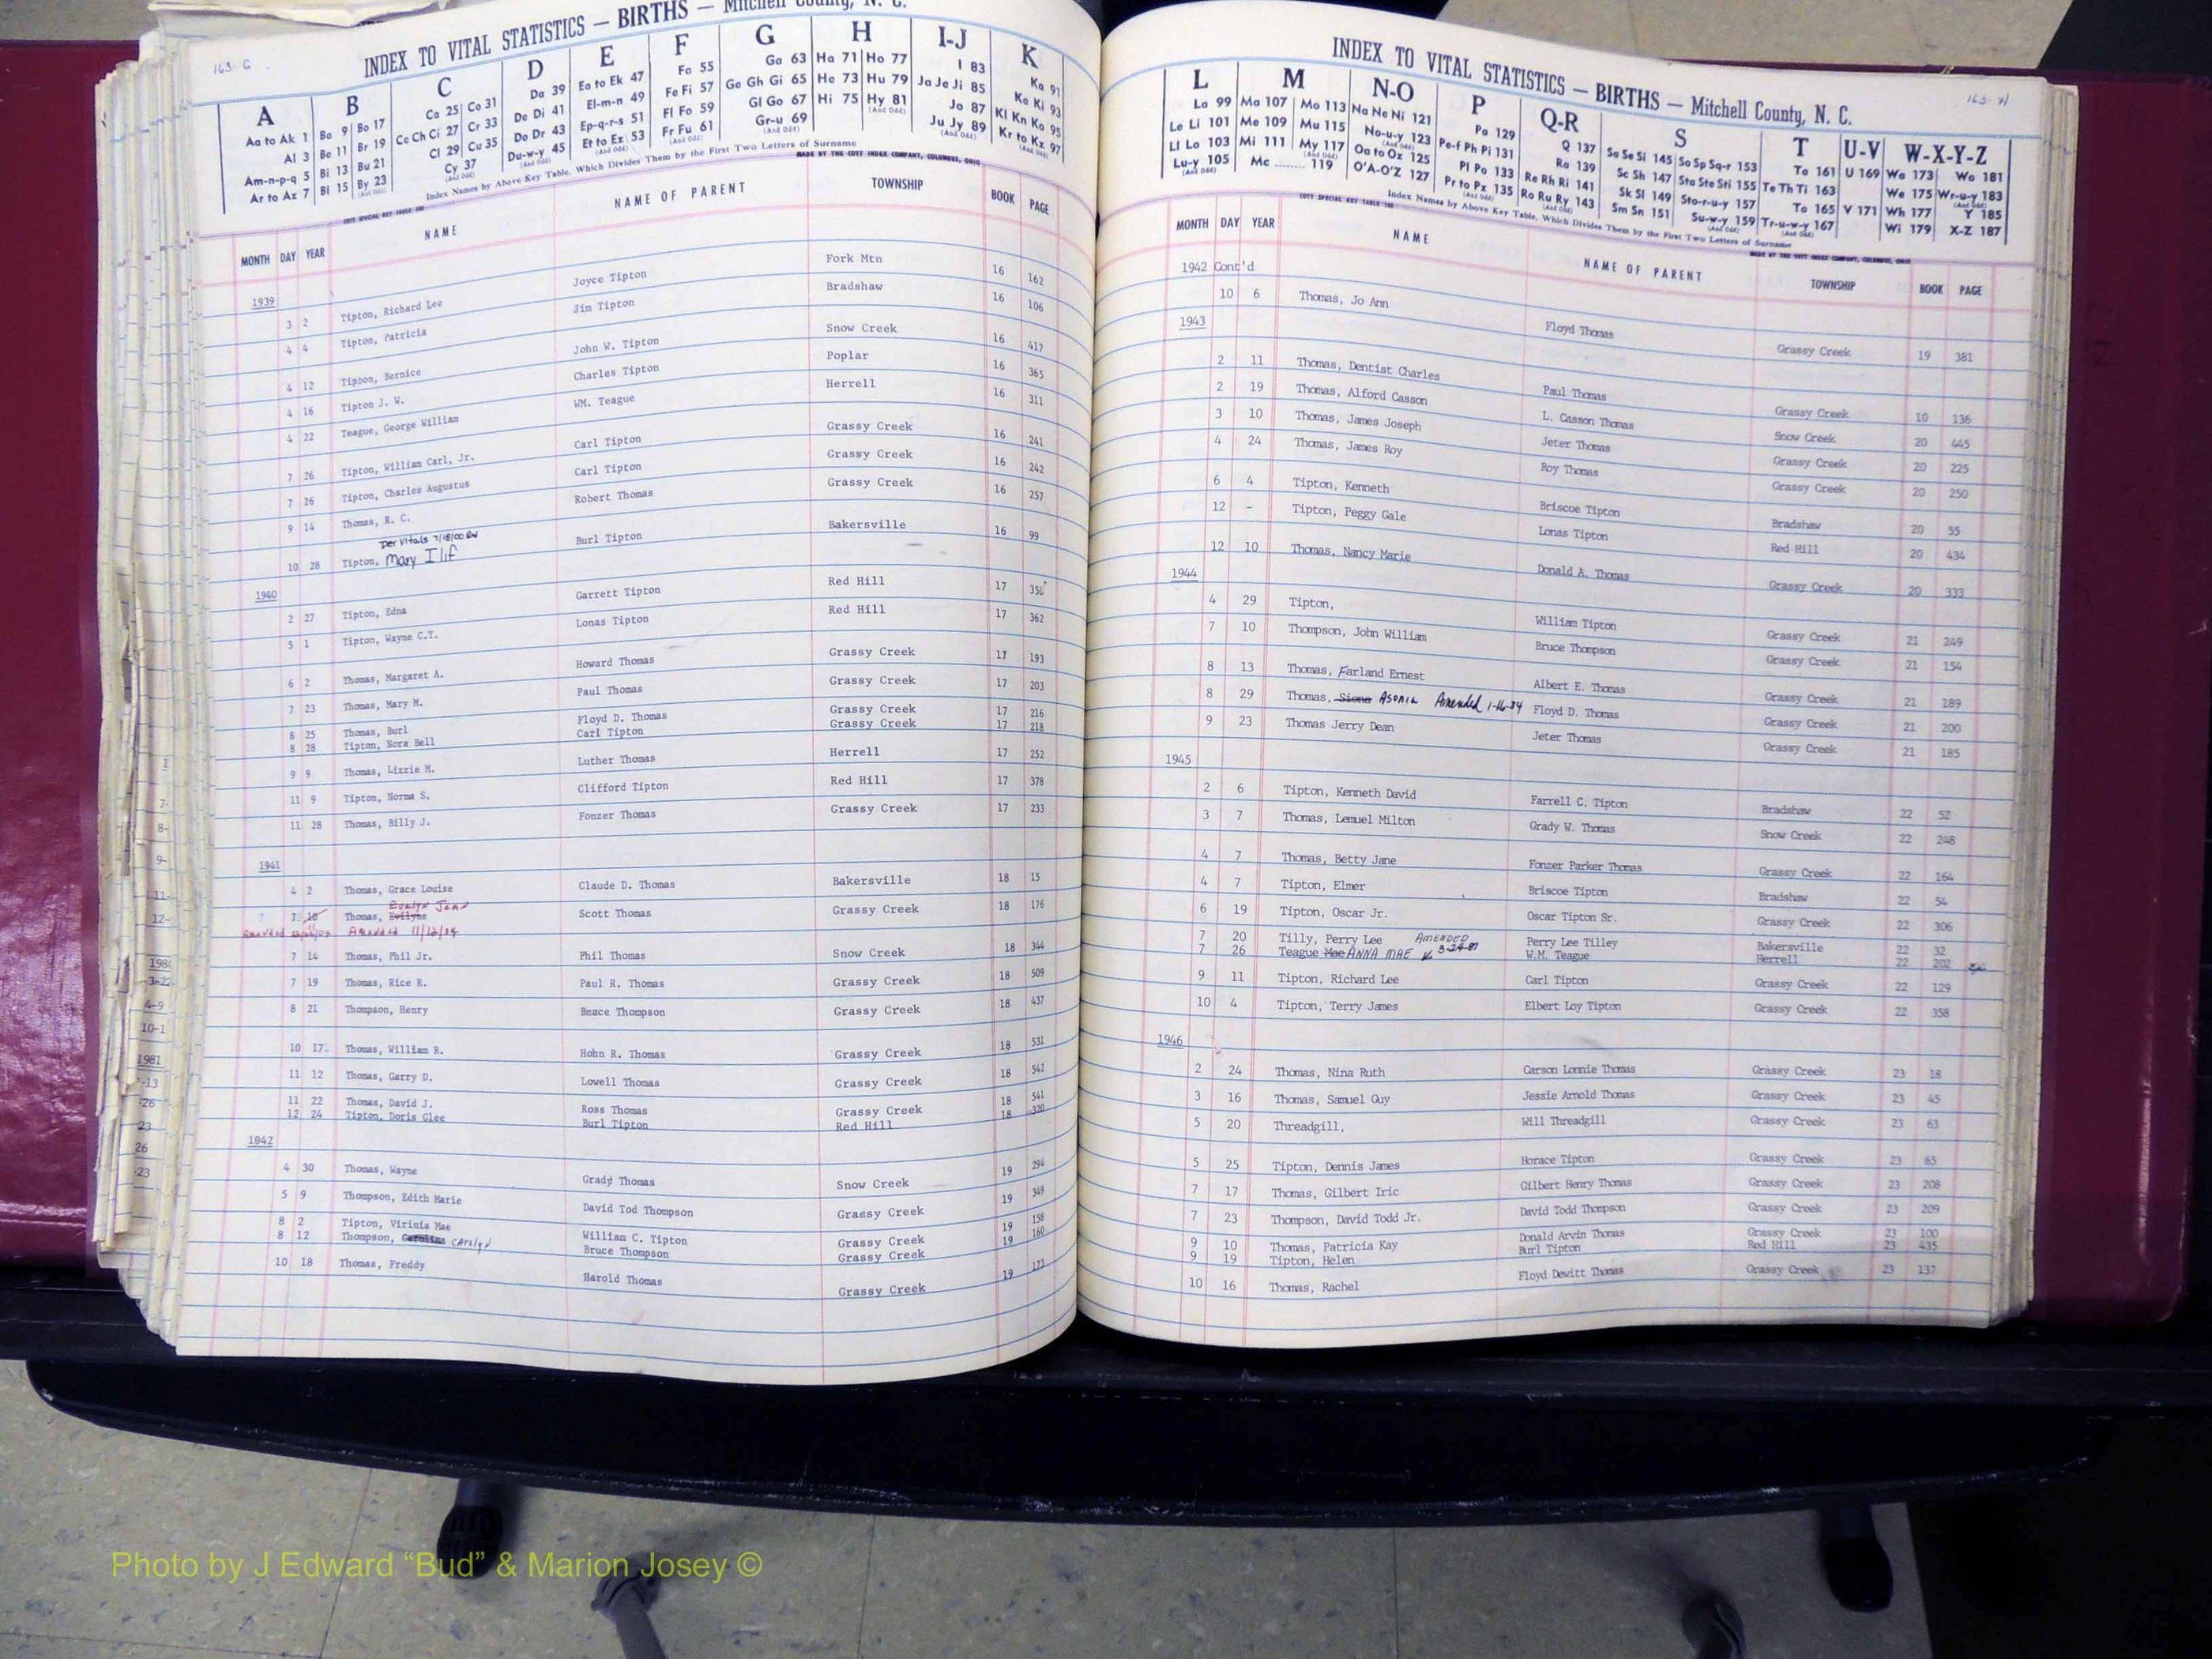 163-G
INDEX TO VITAL STATISTICS — BIRTHS — Mitchell County, N. C.
A B C D E F G H I-J K
Aa to Ak 1 Ba 9 Bo 17 Ca 25 Co 31 Da 39 Ea to Ek 47 Fa 55 Ga 63 Ha 71 Ho 77 I 83 Ka 91
Al 3 Be 11 Br 19 Ce Ch Ci 27 Cr 33 De Di 41 El-m-n 49 Fe Fi 57 Ge Gh Gi 65 He 73 Hu 79 Ja Je Ji 85 Ke Ki 93
Am-n-p-q 5 Bi 13 Bu 21 Cl 29 Cu 35 Do Dr 43 Ep-q-r-s 51 Fl Fo 59 Gl Go 67 Hi 75 Hy 81 Jo 87 Kl Kn Ko 95
Ar to Az 7 Bl 15 By 23 Cy 37 Du-w-y 45 Et to Ex 53 Fr Fu 61 Gr-u 69 Ju Jy 89 Kr to Kz 97
Index Names by Above Key Table, Which Divides Them by the First Two Letters of Surname
COTT SPECIAL KEY TABLE 100 MADE BY THE COTT INDEX COMPANY, COLUMBUS, OHIO
MONTH DAY YEAR NAME NAME OF PARENT TOWNSHIP BOOK PAGE
1939
3 2 Tipton, Richard Lee Joyce Tipton Fork Mtn 16 162
4 4 Tipton, Patricia Jim Tipton Bradshaw 16 106
4 12 Tipton, Bernice John W. Tipton Snow Creek 16 417
4 16 Tipton J. W. Charles Tipton Poplar 16 365
4 22 Teague, George William WM. Teague Herrell 16 311
7 26 Tipton, William Carl, Jr. Carl Tipton Grassy Creek 16 241
7 26 Tipton, Charles Augustus Carl Tipton Grassy Creek 16 242
9 14 Thomas, R. C. Robert Thomas Grassy Creek 16 257
per Vitals 7/18/00
10 28 Tipton, Mary Ilif Burl Tipton Bakersville 16 99
1940
2 27 Tipton, Edna Garrett Tipton Red Hill 17 350
5 1 Tipton, Wayne C.T. Lonas Tipton Red Hill 17 362
6 2 Thomas, Margaret A. Howard Thomas Grassy Creek 17 193
7 23 Thomas, Mary M. Paul Thomas Grassy Creek 17 203
8 25 Thomas, Burl Floyd D. Thomas Grassy Creek 17 216
8 28 Tipton, Nora Bell Carl Tipton Grassy Creek 17 218
9 9 Thomas, Lizzie M. Luther Thomas Herrell 17 252
11 9 Tipton, Norma S. Clifford Tipton Red Hill 17 378
11 28 Thomas, Billy J. Fonzer Thomas Grassy Creek 17 233
1941
4 2 Thomas, Grace Louise Claude D. Thomas Bakersville 18 15
Evelyn Jean
7 10 Thomas, Evilyne Scott Thomas Grassy Creek 18 176
Amended Amended 11/12/04
7 14 Thomas, Phil Jr. Phil Thomas Snow Creek 18 344
7 19 Thomas, Rice R. Paul R. Thomas Grassy Creek 18 509
8 21 Thompson, Henry Beace Thompson Grassy Creek 18 437
10 17 Thomas, William R. Hohn R. Thomas Grassy Creek 18 531
11 12 Thomas, Garry D. Lowell Thomas Grassy Creek 18 542
11 22 Thomas, David J. Ross Thomas Grassy Creek 18 541
12 24 Tipton, Doris Glee Burl Tipton Red Hill 18 320
1942
4 30 Thomas, Wayne Grady Thomas Snow Creek 19 294
5 9 Thompson, Edith Marie David Tod Thompson Grassy Creek 19 349
8 2 Tipton, Virinia Mae William C. Tipton Grassy Creek 19 158
8 12 Thompson, Carolina Carolyn Bruce Thompson Grassy Creek 19 160
10 18 Thomas, Freddy Harold Thomas Grassy Creek 19 173
163-H
INDEX TO VITAL STATISTICS — BIRTHS — Mitchell County, N. C.
L M N-O P Q-R S T U-V W-X-Y-Z
La 99 Ma 107 Mo 113 Na Ne Ni 121 Pa 129 Q 137 Sa Se Si 145 So Sp Sq-r 153 Ta 161 U 169 Wa 173 Wo 181
Le Li 101 Me 109 Mu 115 No-u-y 123 Pe-f Ph Pi 131 Ra 139 Sc Sh 147 Sta Ste Sti 155 Te Th Ti 163 We 175 Wr-u-y 183
Ll Lo 103 Mi 111 My 117 Oa to Oz 125 Pl Po 133 Re Rh Ri 141 Sk Sl 149 Sto-r-u-y 157 To 165 V 171 Wh 177 Y 185
Lu-y 105 Mc 119 O'A-O'Z 127 Pr to Pz 135 Ro Ru Ry 143 Sm Sn 151 Su-w-y 159 Tr-u-w-y 167 Wi 179 X-Z 187
Index Names by Above Key Table, Which Divides Them by the First Two Letters of Surname
COTT SPECIAL KEY TABLE 100 MADE BY THE COTT INDEX COMPANY, COLUMBUS, OHIO
MONTH DAY YEAR NAME NAME OF PARENT TOWNSHIP BOOK PAGE
1942 Cont'd
10 6 Thomas, Jo Ann Floyd Thomas Grassy Creek 19 381
1943
2 11 Thomas, Dentist Charles Paul Thomas Grassy Creek 10 136
2 19 Thomas, Alford Casson L. Casson Thomas Snow Creek 20 445
3 10 Thomas, James Joseph Jeter Thomas Grassy Creek 20 225
4 24 Thomas, James Roy Roy Thomas Grassy Creek 20 250
6 4 Tipton, Kenneth Briscoe Tipton Bradshaw 20 55
12 - Tipton, Peggy Gale Lonas Tipton Red Hill 20 434
12 10 Thomas, Nancy Marie Donald A. Thomas Grassy Creek 20 333
1944
4 29 Tipton, William Tipton Grassy Creek 21 249
7 10 Thompson, John William Bruce Thompson Grassy Creek 21 154
8 13 Thomas, Farland Ernest Albert E. Thomas Grassy Creek 21 189
8 29 Thomas, Siona Asonia Amended 1-16-84 Floyd D. Thomas Grassy Creek 21 200
9 23 Thomas Jerry Dean Jeter Thomas Grassy Creek 21 185
1945
2 6 Tipton, Kenneth David Farrell C. Tipton Bradshaw 22 52
3 7 Thomas, Lemuel Milton Grady W. Thomas Snow Creek 22 248
4 7 Thomas, Betty Jane Fonzer Parker Thomas Grassy Creek 22 164
4 7 Tipton, Elmer Briscoe Tipton Bradshaw 22 54
6 19 Tipton, Oscar Jr. Oscar Tipton Sr. Grassy Creek 22 306
7 20 Tilly, Perry Lee AMENDED Perry Lee Tilley Bakersville 22 32
7 26 Teague Mae ANNA MAE W.M. Teague Herrell 22 202
9 11 Tipton, Richard Lee Carl Tipton Grassy Creek 22 129
10 4 Tipton, Terry James Elbert Loy Tipton Grassy Creek 22 358
1946
2 24 Thomas, Nina Ruth Carson Lonnie Thomas Grassy Creek 23 18
3 16 Thomas, Samuel Guy Jessie Arnold Thomas Grassy Creek 23 45
5 20 Threadgill, Will Threadgill Grassy Creek 23 63
5 25 Tipton, Dennis James Horace Tipton Grassy Creek 23 65
7 17 Thomas, Gilbert Iric Gilbert Henry Thomas Grassy Creek 23 208
7 23 Thompson, David Todd Jr. David Todd Thompson Grassy Creek 23 209
9 10 Thomas, Patricia Kay Donald Arvin Thomas Grassy Creek 23 100
9 19 Tipton, Helen Burl Tipton Red Hill 23 435
10 16 Thomas, Rachel Floyd Dewitt Thomas Grassy Creek 23 137
Photo by J Edward “Bud” & Marion Josey ©